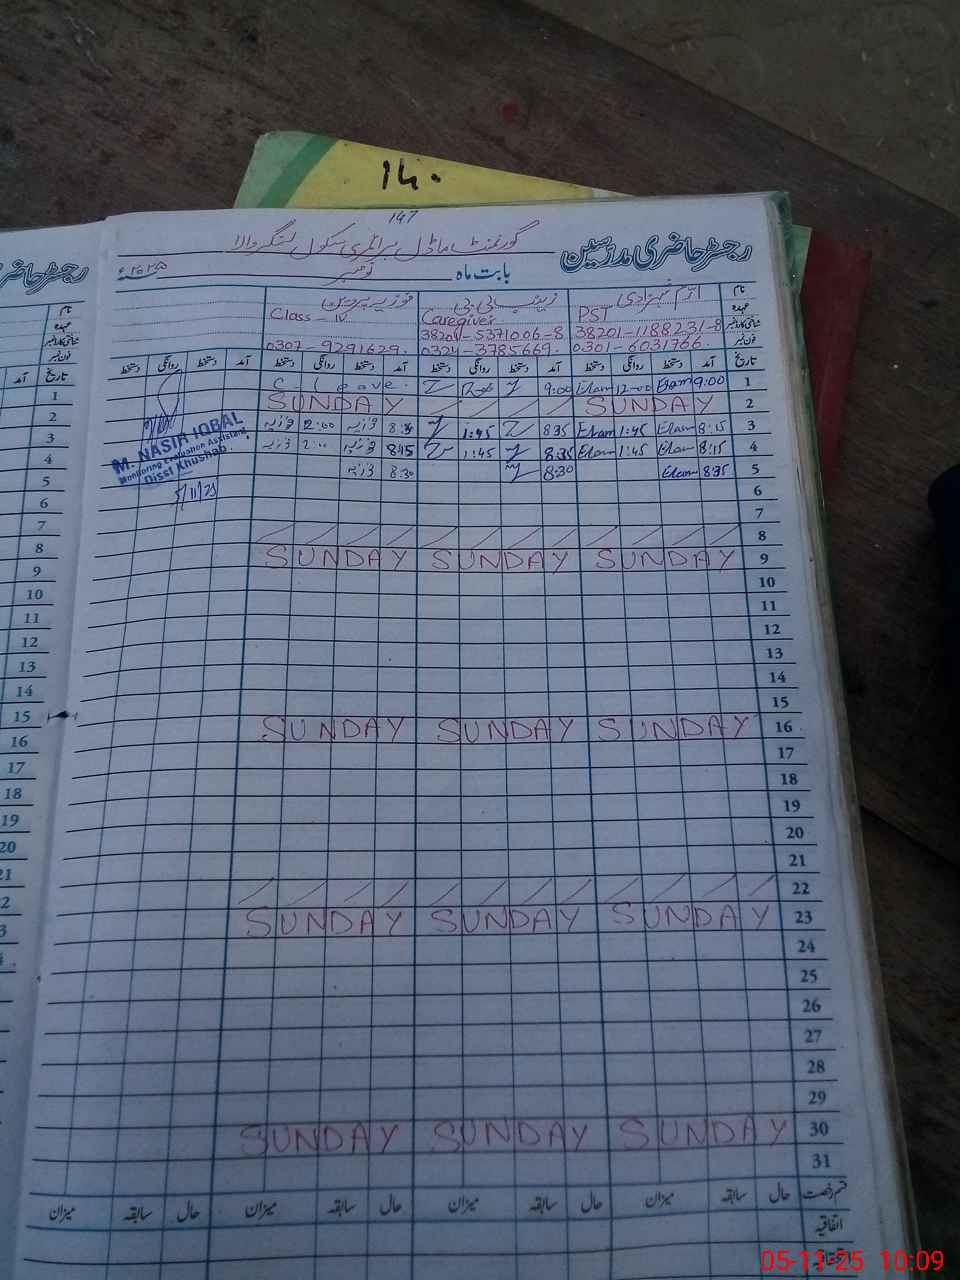 14.
147
گورنمنٹ ماڈل پرائمری سکول لنگر والا
رجسٹر حاضری مدرسین
بابت ماہ نومبر ۲۰۲۵ء
نام ارم شہزادی زینب بی بی فوزیہ پروین
عہدہ PST Caregiver Class - IV
شناختی کارڈ نمبر 38201-1188231-8 38201-5371006-8
فون نمبر 0301-6031766 0324-3785669. 0307-9291629.
تاریخ آمد دستخط روانگی دستخط آمد دستخط روانگی دستخط آمد دستخط روانگی دستخط آمد دستخط روانگی دستخط
1 9:00 Elam 12:00 Elam 9:00 C. Leave.
2 SUNDAY SUNDAY
3 8:15 Elam 1:45 Elam 8:35 1:45 8:30 فوزیہ 2:00 فوزیہ
4 8:15 Elam 1:45 Elam 8:35 1:45 8:45 فوزیہ 2:00 فوزیہ
5 8:35 Elam 8:30 8:30 فوزیہ
M. NASIR IQBAL
Monitoring Evaluation Assistant
Disst Khushab.
5/11/25
6
7
8
9 SUNDAY SUNDAY SUNDAY
10
11
12
13
14
15
16 SUNDAY SUNDAY SUNDAY
17
18
19
20
21
22
23 SUNDAY SUNDAY SUNDAY
24
25
26
27
28
29
30 SUNDAY SUNDAY SUNDAY
31
قسم رخصت حال سابقہ میزان حال سابقہ میزان حال سابقہ میزان حال سابقہ میزان
اتفاقیہ
رجسٹر حاضر
نام
عہدہ
شناختی کارڈ نمبر
فون نمبر
تاریخ آمد
1
2
3
4
5
6
7
8
9
10
11
12
13
14
15
16
17
18
19
20
21
05-11-25 10:09